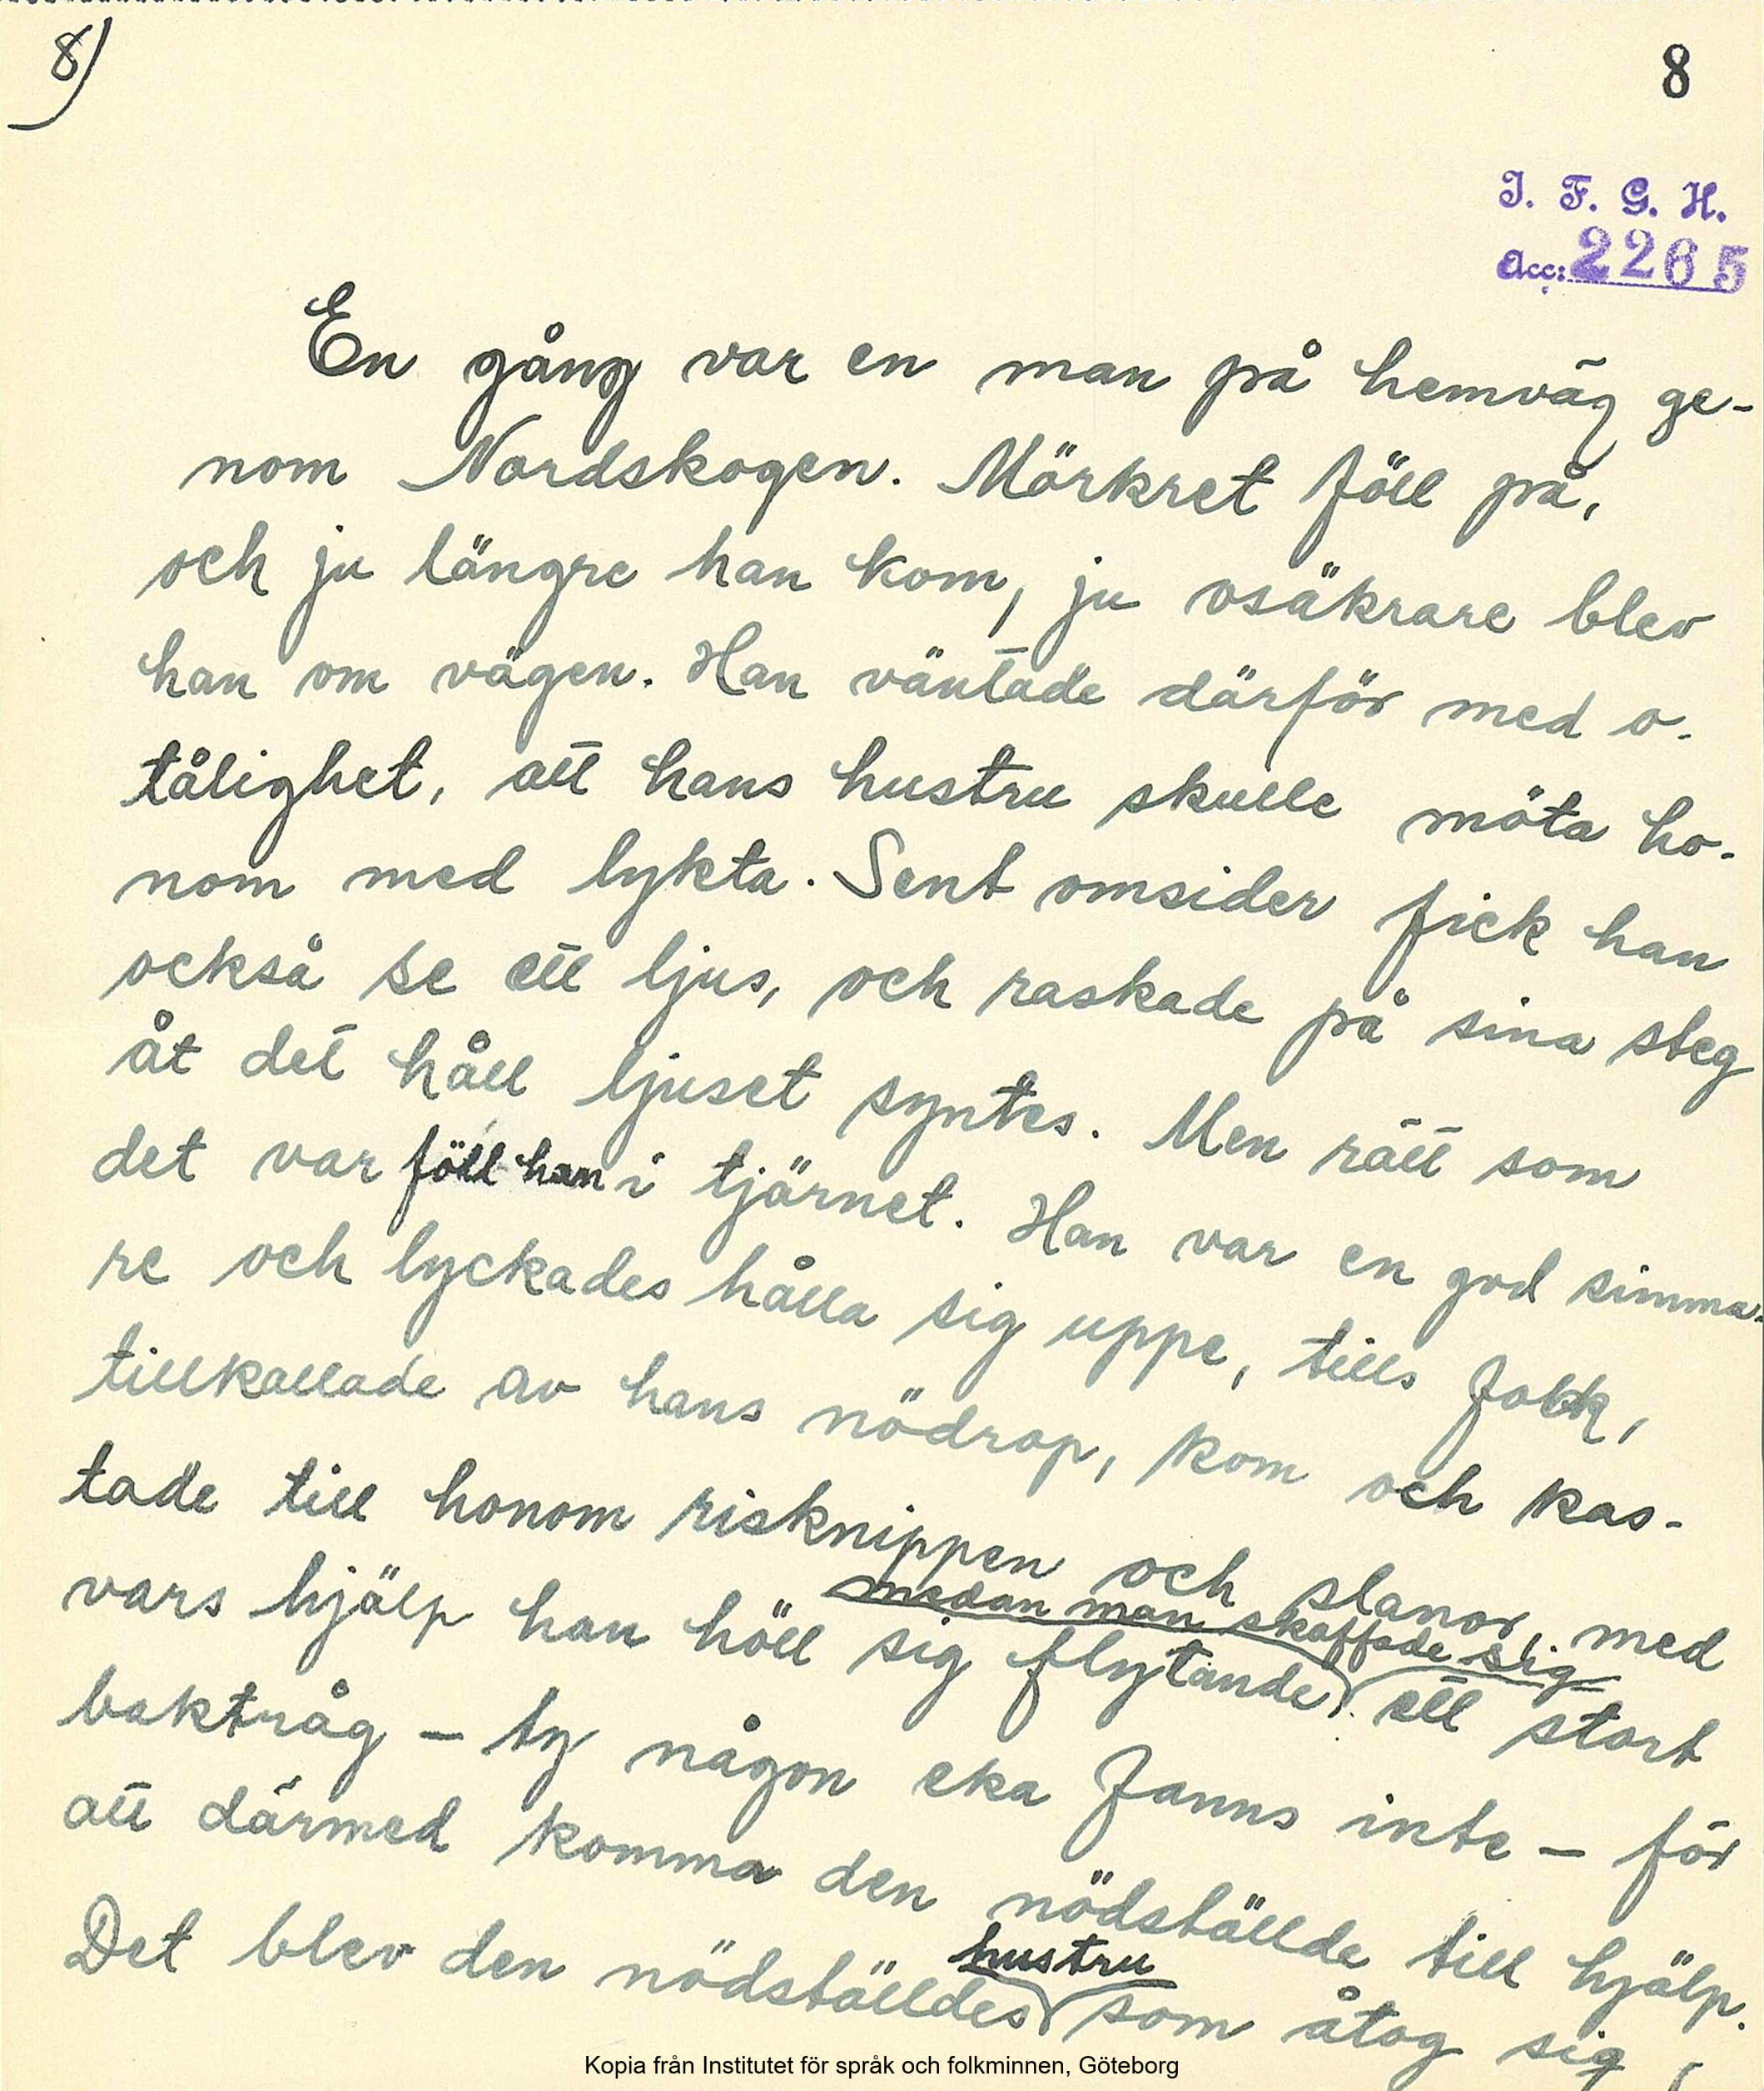 8)
8
I. F. G. H.
Acc: 2265
En gång var en man på hemväg ge-
nom Nordskogen. Mörkret föll på,
och ju längre han kom, ju osäkrare blev
han om vägen. Han väntade därför med o-
tålighet, att hans hustru skulle möta ho-
nom med lykta. Sent omsider fick han
också se ett ljus, och raskade på sina steg
åt det håll ljuset syntes. Men rätt som
det var föll han i tjärnet. Han var en god simma-
re och lyckades hålla sig uppe, tills folk,
tillkallade av hans nödrop, kom och kas-
tade till honom risknippen och slanor, med
medan man skaffade sig
vars hjälp han höll sig flytande ett stort
baktråg – ty någon eka fanns inte – för
att därmed komma den nödställde till hjälp.
hustru
Det blev den nödställdes som åtog sig
Kopia från Institutet för språk och folkminnen, Göteborg